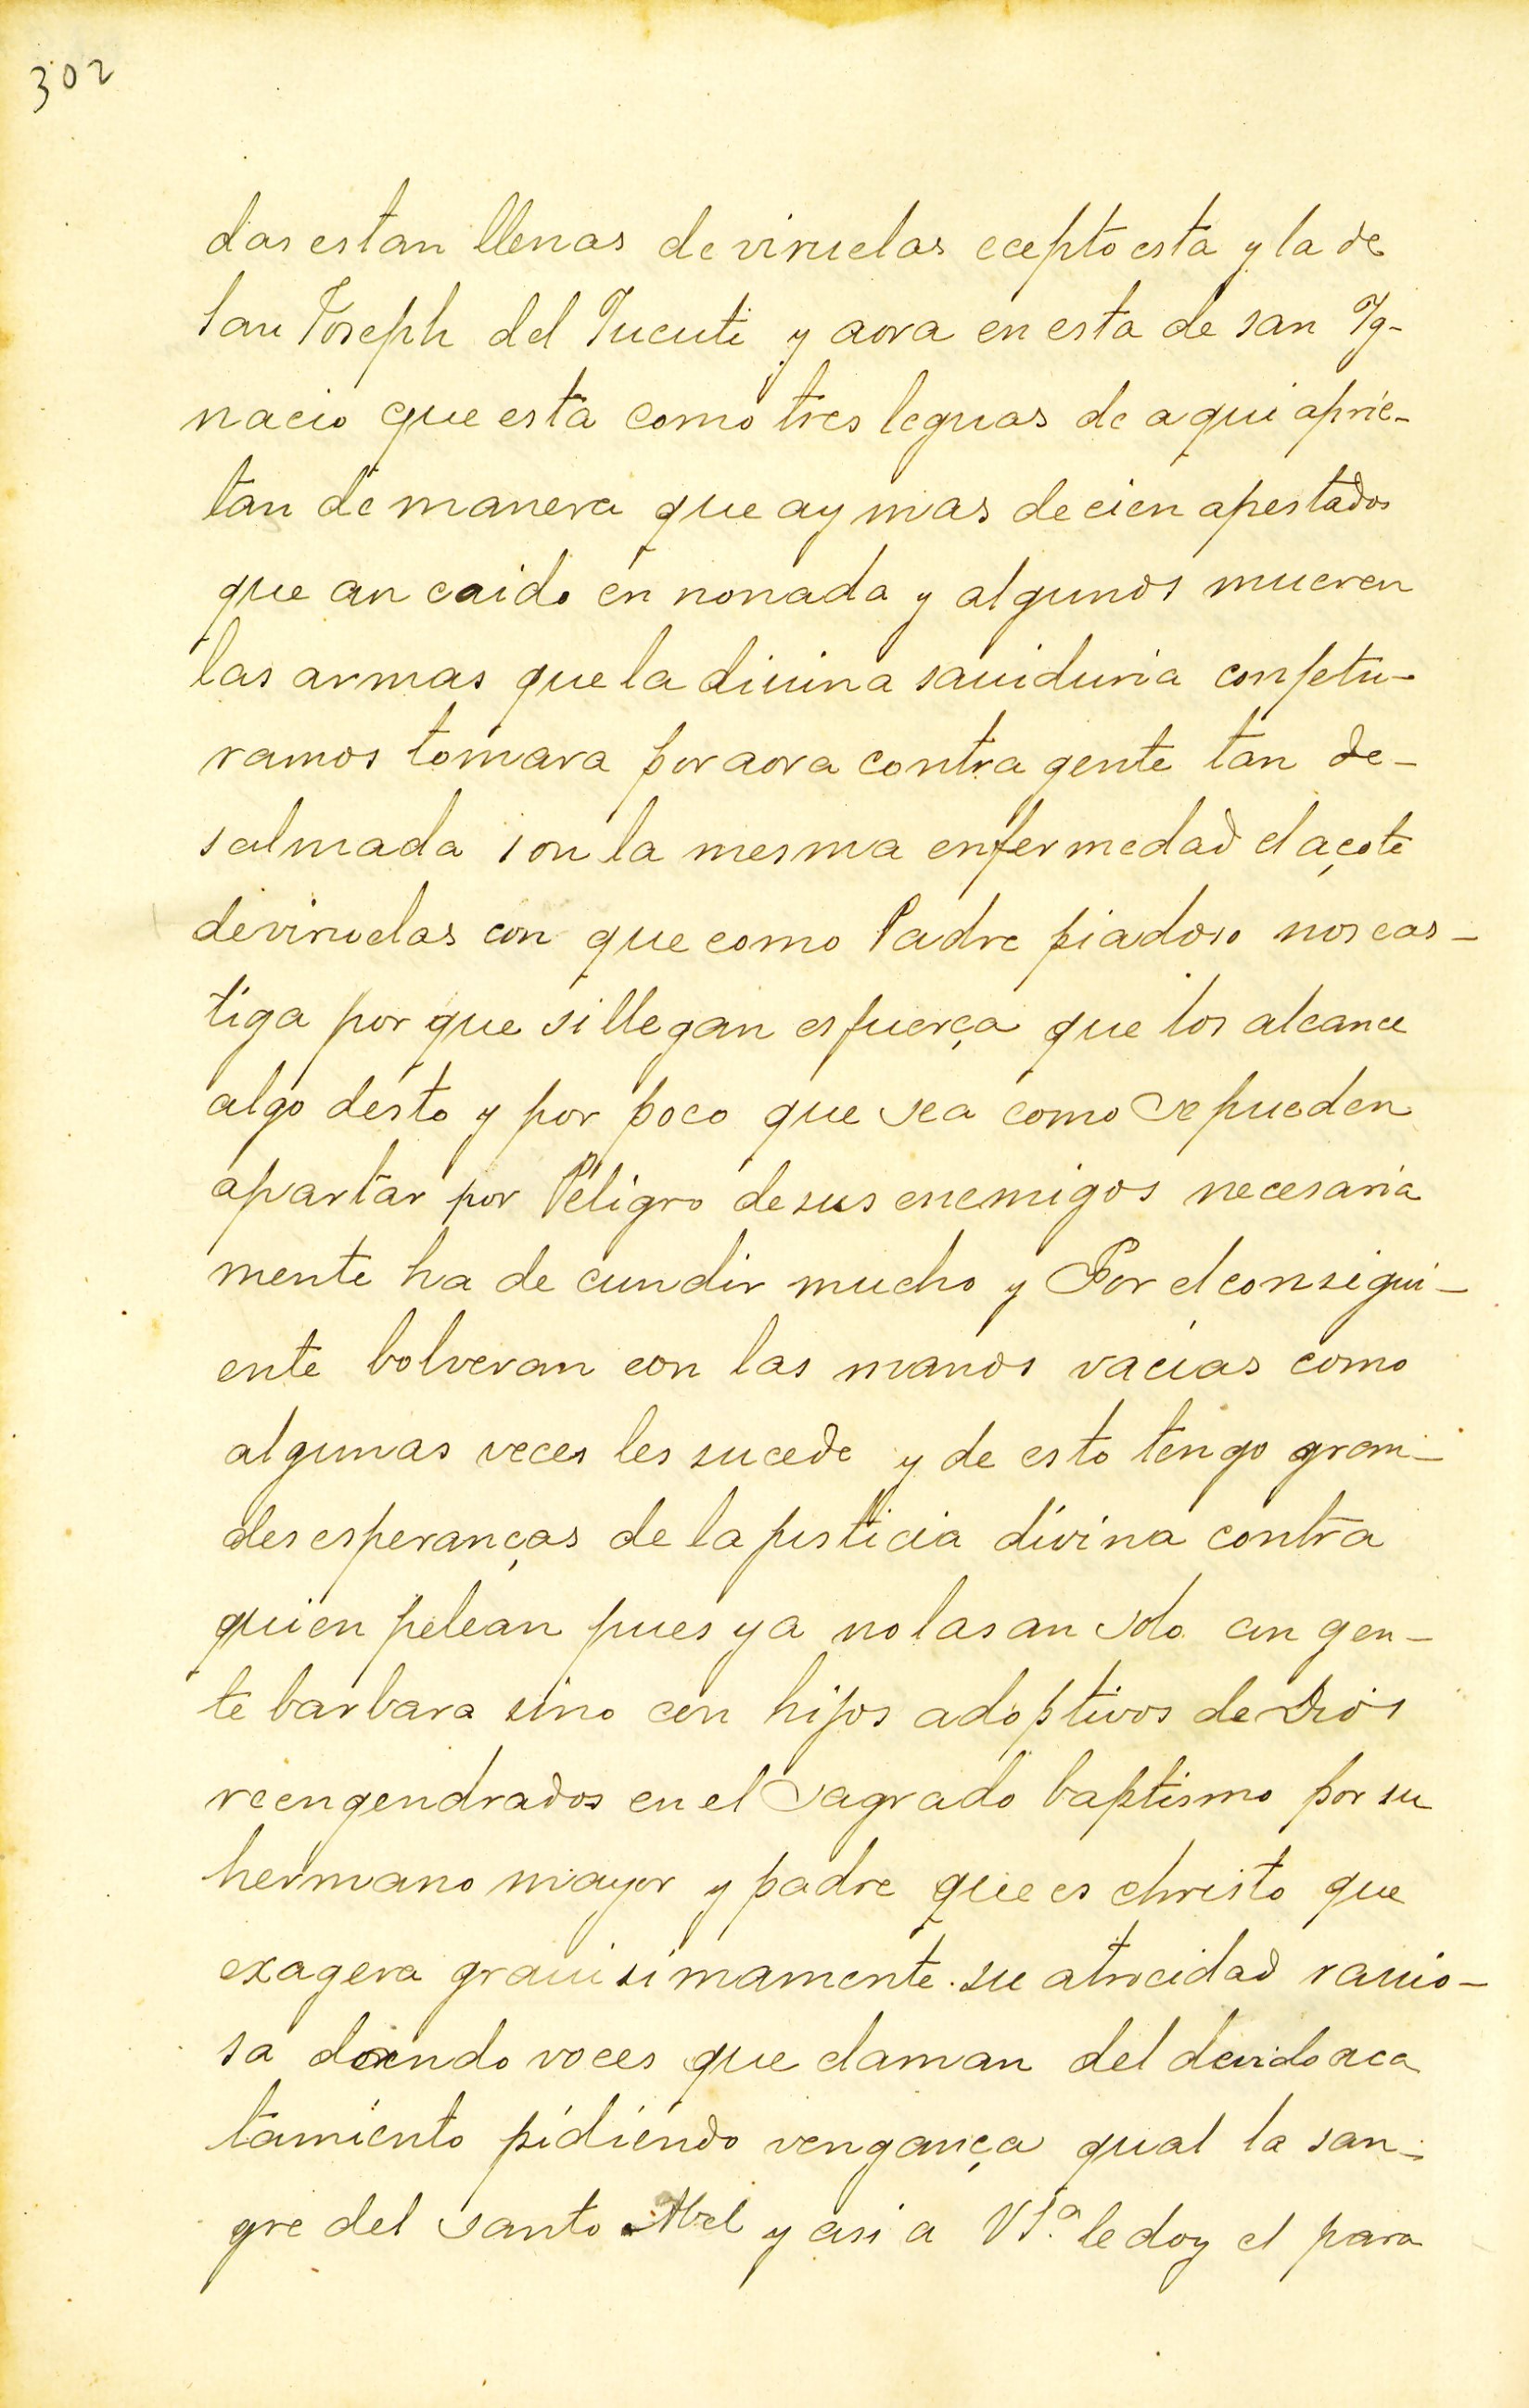 302
das estan llenas de viruelas ecepto esta y la de
san Joseph del Tucuti y aora en esta de san Yg-
nacio que esta como tres leguas de aqui aprie-
tan de manera que ay mas de cien apestados
que an caido en nonada y algunos mueren
las armas que la diuina sauiduria conjetu-
ramos tomara por aora contra gente tan de-
salmada son la mesma enfermedad el açote
de viruelas con que como Padre piadoso nos cas-
tiga por que si llegan es fuerça que los alcance
algo desto y por poco que sea como se pueden
apartar por Peligro de sus enemigos necesaria
mente ha de cundir mucho y Por el consigui-
ente bolveran con las manos vacias como
algunas veces les sucede y de esto tengo gran-
des esperanças de la justicia divina contra
quien pelean pues ya no las an solo con gen-
te barbara sino con hijos adoptivos de Dios
reengendrados en el sagrado baptismo por su
hermano mayor y padre que es christo que
exagera grauisimamente su atrocidad rauio-
sa dando voces que claman del devido aca
tamiento pidiendo vengança qual la san-
gre del santo Abel y asi a VSª. le doy el para